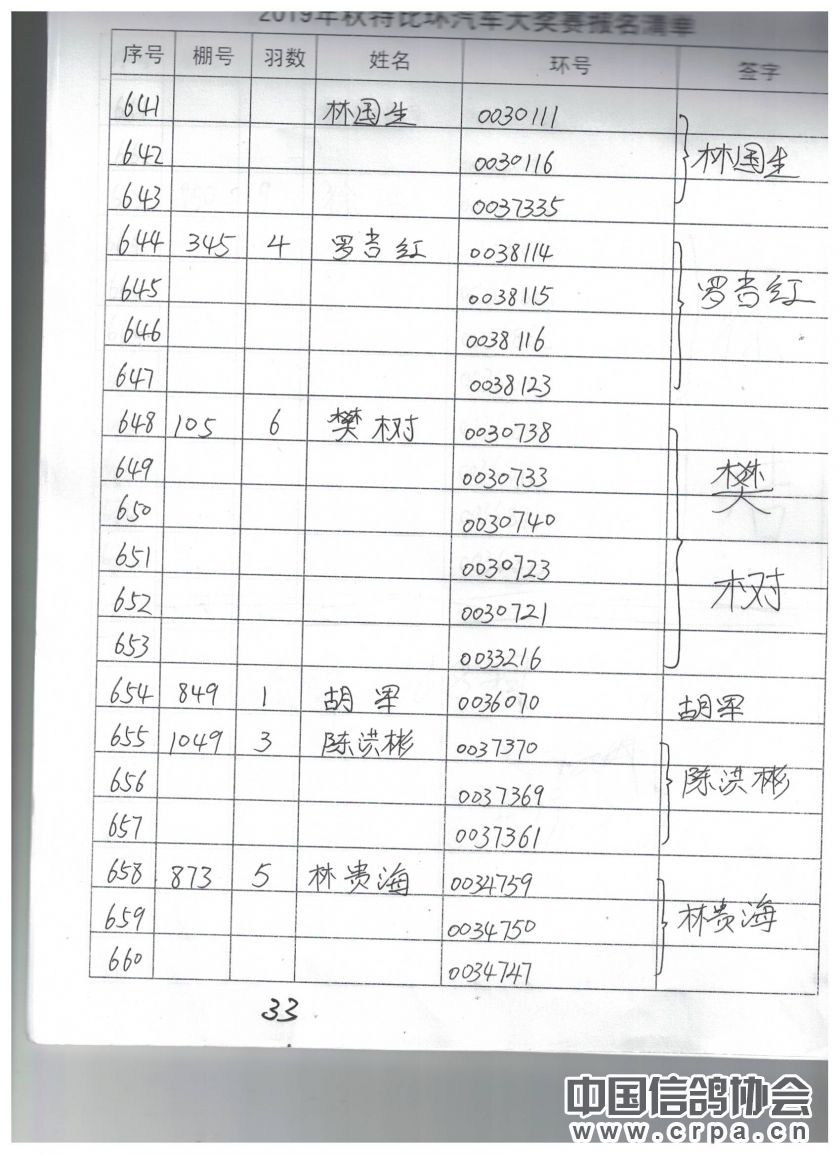 2019年秋特比环汽车大奖赛报名清单
序号 棚号 羽数 姓名 环号 签字
641 林国生 0030111
642 0030116 林国生
643 0037335
644 345 4 罗吉红 0038114
645 0038115 罗吉红
646 0038116
647 0038123
648 105 6 樊树 0030738
649 0030733 樊
650 0030740
651 0030723
652 0030721 树
653 0033216
654 849 1 胡军 0036070 胡军
655 1049 3 陈洪彬 0037370
656 0037369 陈洪彬
657 0037361
658 873 5 林贵海 0034759
659 0034750 林贵海
660 0034747
33
中国信鸽协会
www.crpa.cn